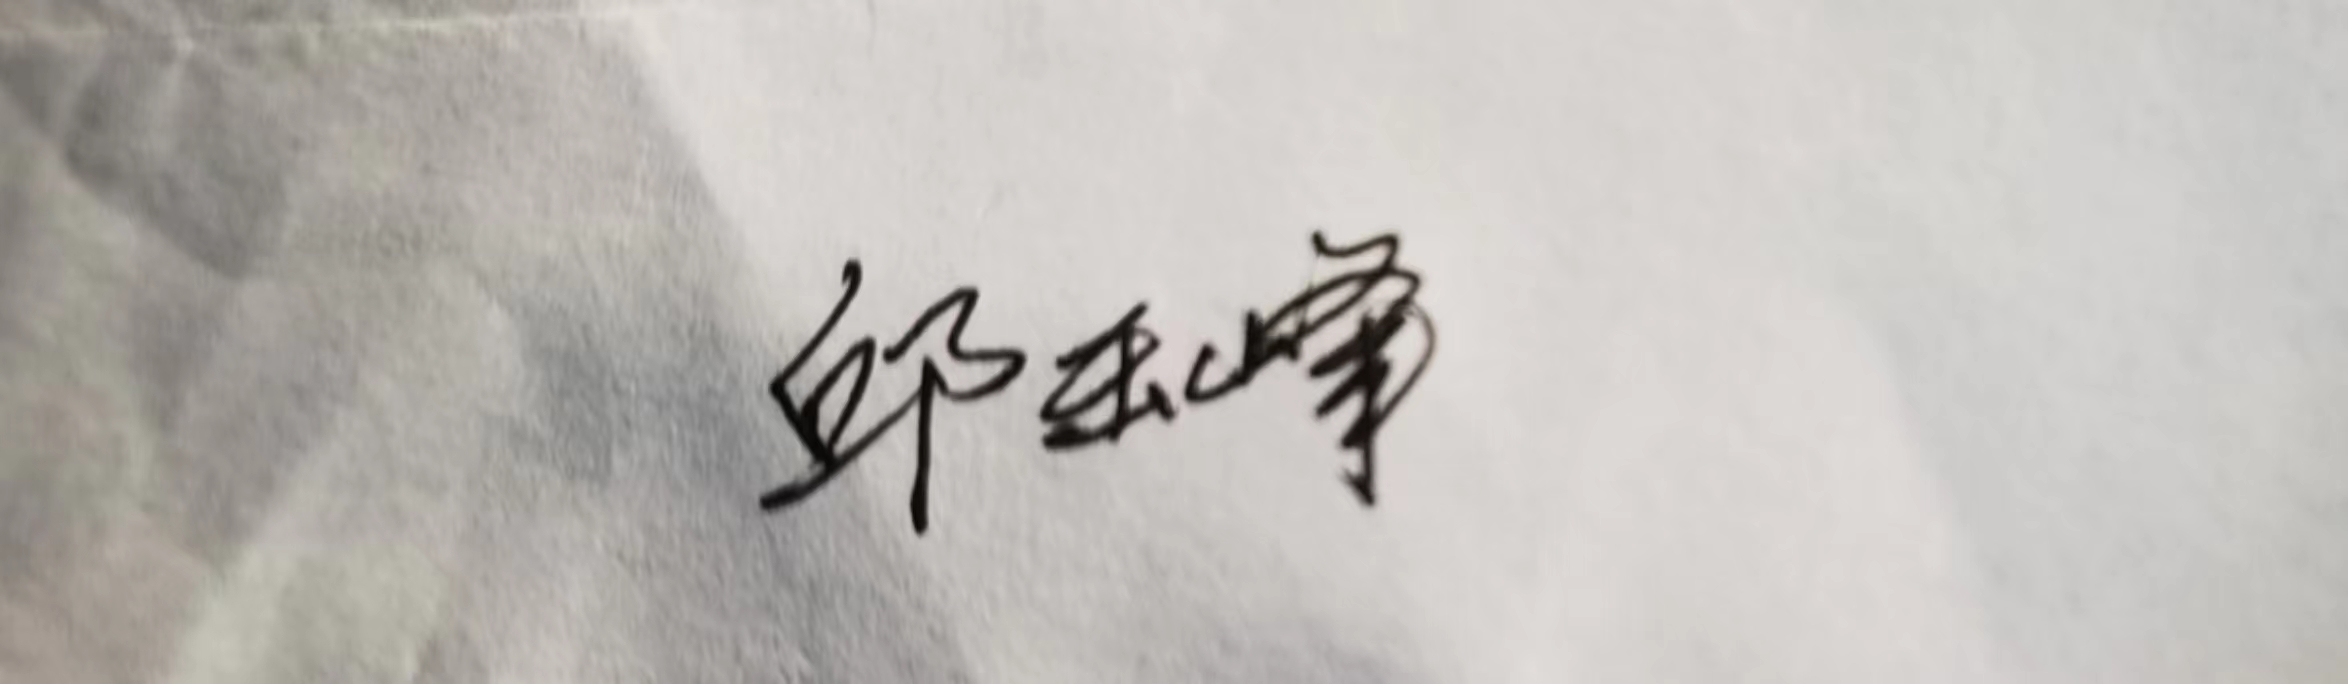 邱玉峰